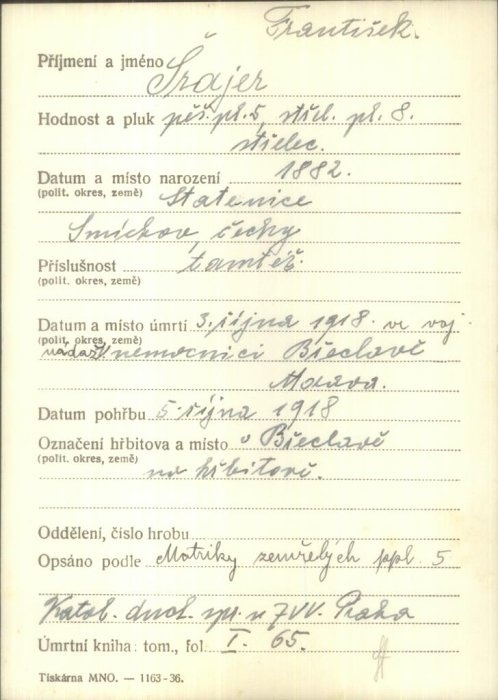 František.
Příjmení a jméno Šrajer
Hodnost a pluk pěš. pl. 5, střel. pl. 8.
střelec.
Datum a místo narození 1882.
(polit. okres, země) Statenice
Smíchov, čechy
Příslušnost tamtéž.
(polit. okres, země)
Datum a místo úmrtí 3. října 1918 ve voj.
(polit. okres, země)
nádaž. nemocnici Břeclavě
Morava.
Datum pohřbu 5. října 1918
Označení hřbitova a místo v Břeclavě
(polit. okres, země)
na hřbitově.
Oddělení, číslo hrobu
Opsáno podle Matriky zemřelých ppl. 5
Katol. duch. spr. u ZVV. Praha
Úmrtní kniha: tom., fol. I. 65.
Tiskárna MNO. — 1163-36.